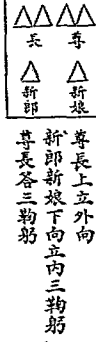 尊長
新娘
新郎
尊長上立外向
新郎新娘下向立內三鞠躬
尊長答三鞠躬